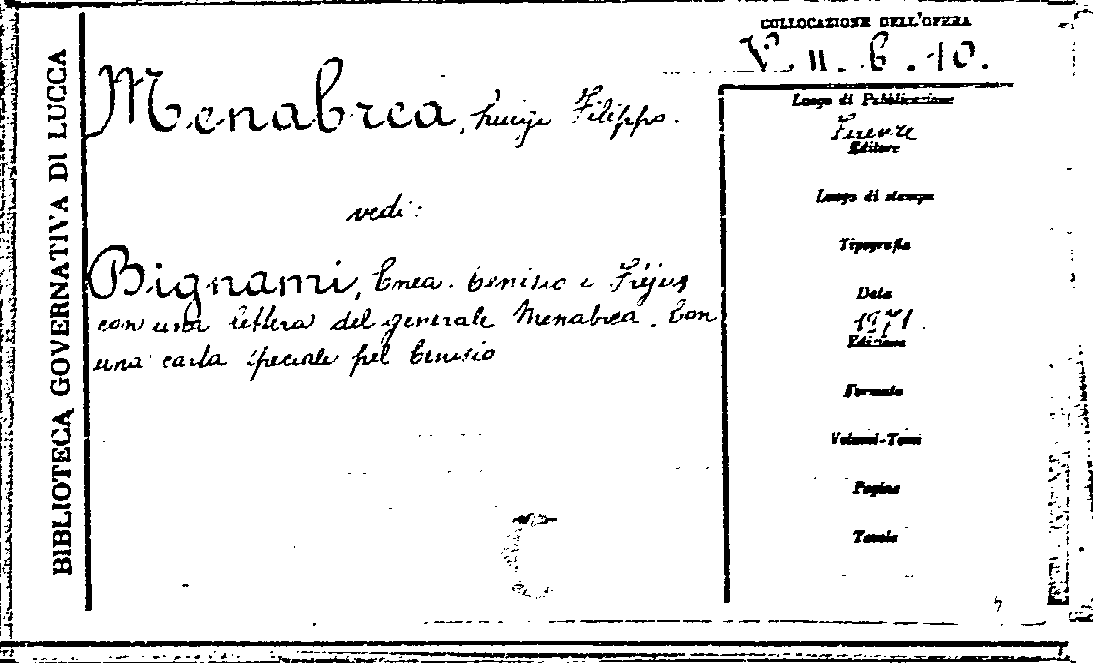 BIBLIOTECA GOVERNATIVA DI LUCCA
COLLOCAZIONE DELL'OPERA
V. II. 6. 10.
Menabrea, Luigi Filippo.
vedi:
Bignami, Enea. Cenisio e Fréjus
con una lettera del generale Menabrea. Con
una carta speciale pel Cenisio
Luogo di Pubblicazione
Firenze
Editore
Luogo di stampa
Tipografia
Data
1871.
Edizione
Formato
Volumi-Tomi
Pagine
Tavole
C